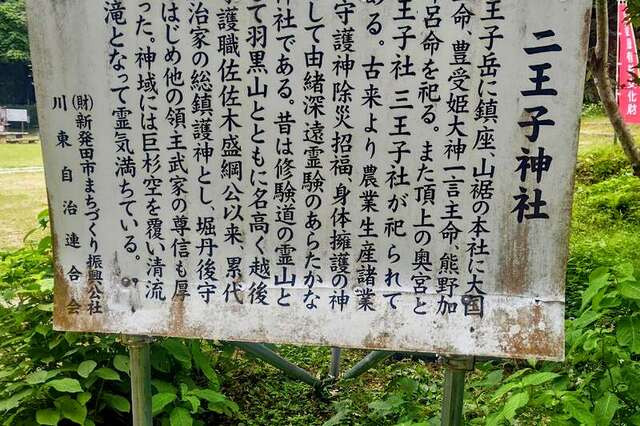 二王子神社
王子岳に鎮座、山裾の本社に大国
命、豊受姫大神一言主命、熊野加
呂命を祀る。また頂上の奥宮と
王子社 三王子社が祀られて
ある。古来より農業生産諸業
守護神除災招福身体擁護の神
して由緒深遠霊験のあらたかな
神社である。昔は修験道の霊山と
て羽黒山とともに名高く越後
護職佐佐木盛綱公以来、累代
治家の総鎮護神とし、堀丹後守
はじめ他の領主武家の尊信も厚
った。神域には巨杉空を覆い清流
滝となって霊気満ちている。
(財)新発田市まちづくり振興公社
川東自治連合会
化財